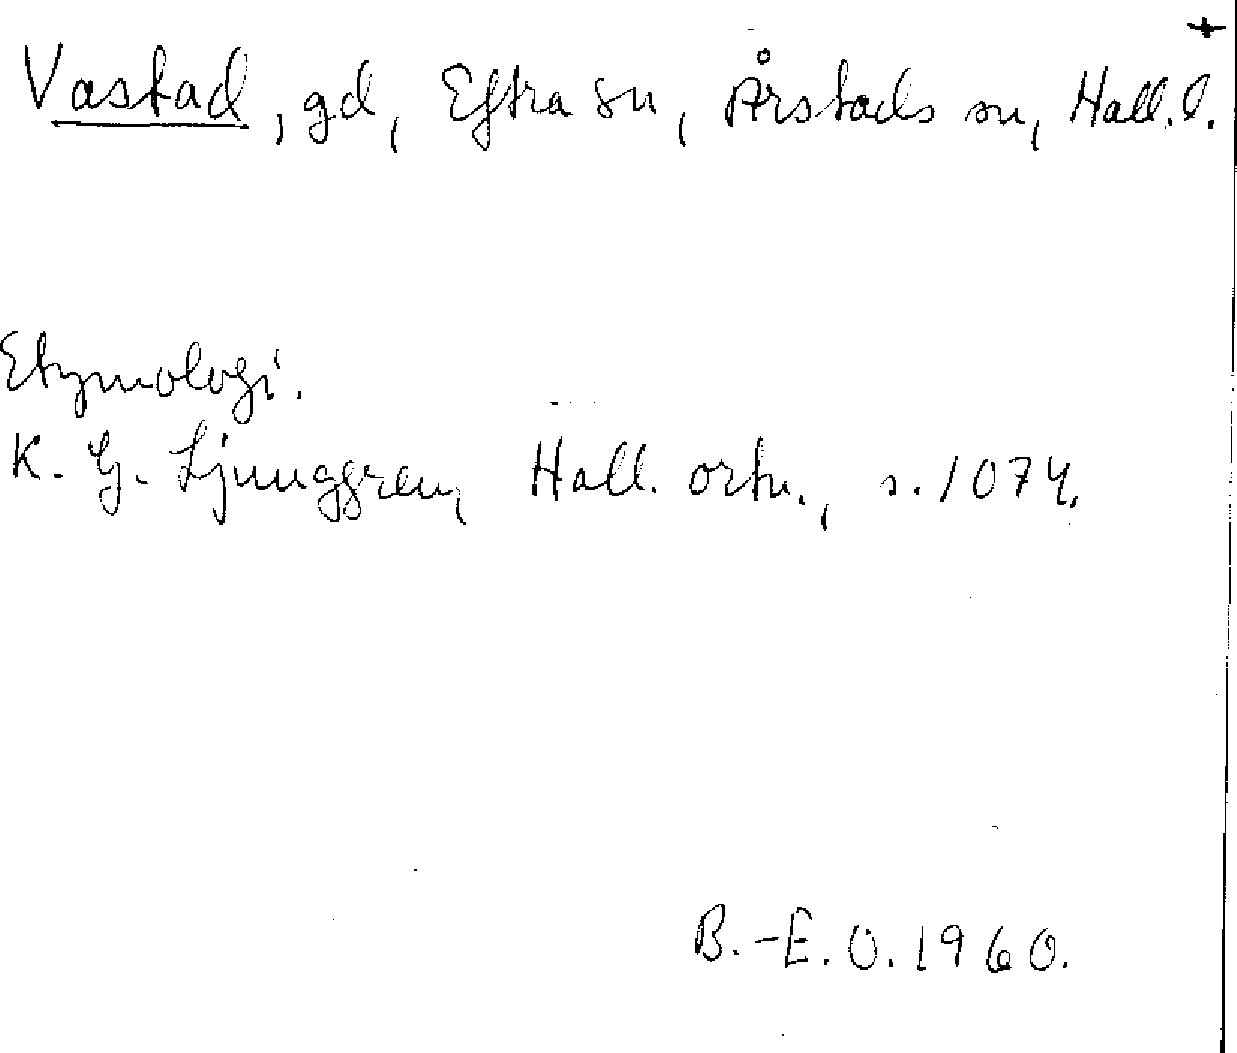 +
Vastad, gd, Eftra sn, Årstads sn, Hall. l.
Etymologi.
K. G. Ljunggren, Hall. ortn., s. 1074.
B.-E. O. 1960.